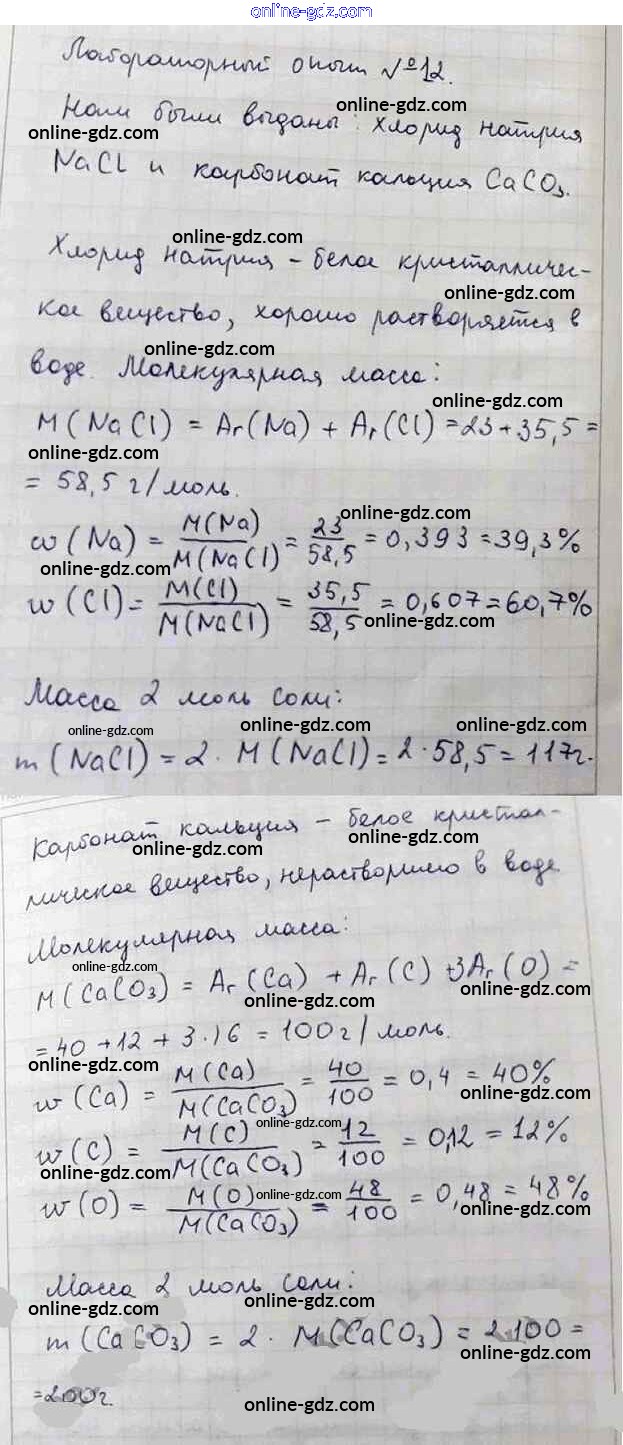 online-gdz.com
Лабораторный опыт №12.
online-gdz.com
Нам были выданы: хлорид натрия
online-gdz.com
NaCl и карбонат кальция CaCO3.
online-gdz.com
Хлорид натрия – белое кристалличес-
online-gdz.com
кое вещество, хорошо растворяется в
online-gdz.com
воде. Молекулярная масса:
online-gdz.com
M(NaCl) = Ar(Na) + Ar(Cl) = 23 + 35,5 =
online-gdz.com
= 58,5 г/моль.
online-gdz.com
w(Na) = M(Na) / M(NaCl) = 23 / 58,5 = 0,393 = 39,3%
online-gdz.com
w(Cl) = M(Cl) / M(NaCl) = 35,5 / 58,5 = 0,607 = 60,7%
online-gdz.com
Масса 2 моль соли:
online-gdz.com online-gdz.com online-gdz.com
m(NaCl) = 2 · M(NaCl) = 2 · 58,5 = 117г.
Карбонат кальция – белое кристал-
online-gdz.com online-gdz.com
лическое вещество, нерастворимо в воде
Молекулярная масса:
online-gdz.com
M(CaCO3) = Ar(Ca) + Ar(C) + 3Ar(O) =
online-gdz.com online-gdz.com
= 40 + 12 + 3·16 = 100 г/моль.
online-gdz.com online-gdz.com
w(Ca) = M(Ca) / M(CaCO3) = 40 / 100 = 0,4 = 40%
online-gdz.com
w(C) = M(C) / M(CaCO3) = 12 / 100 = 0,12 = 12%
online-gdz.com online-gdz.com
w(O) = M(O) / M(CaCO3) = 48 / 100 = 0,48 = 48%
online-gdz.com online-gdz.com online-gdz.com
Масса 2 моль соли:
online-gdz.com online-gdz.com online-gdz.com
m(CaCO3) = 2 · M(CaCO3) = 2·100 =
online-gdz.com
=200г.
online-gdz.com